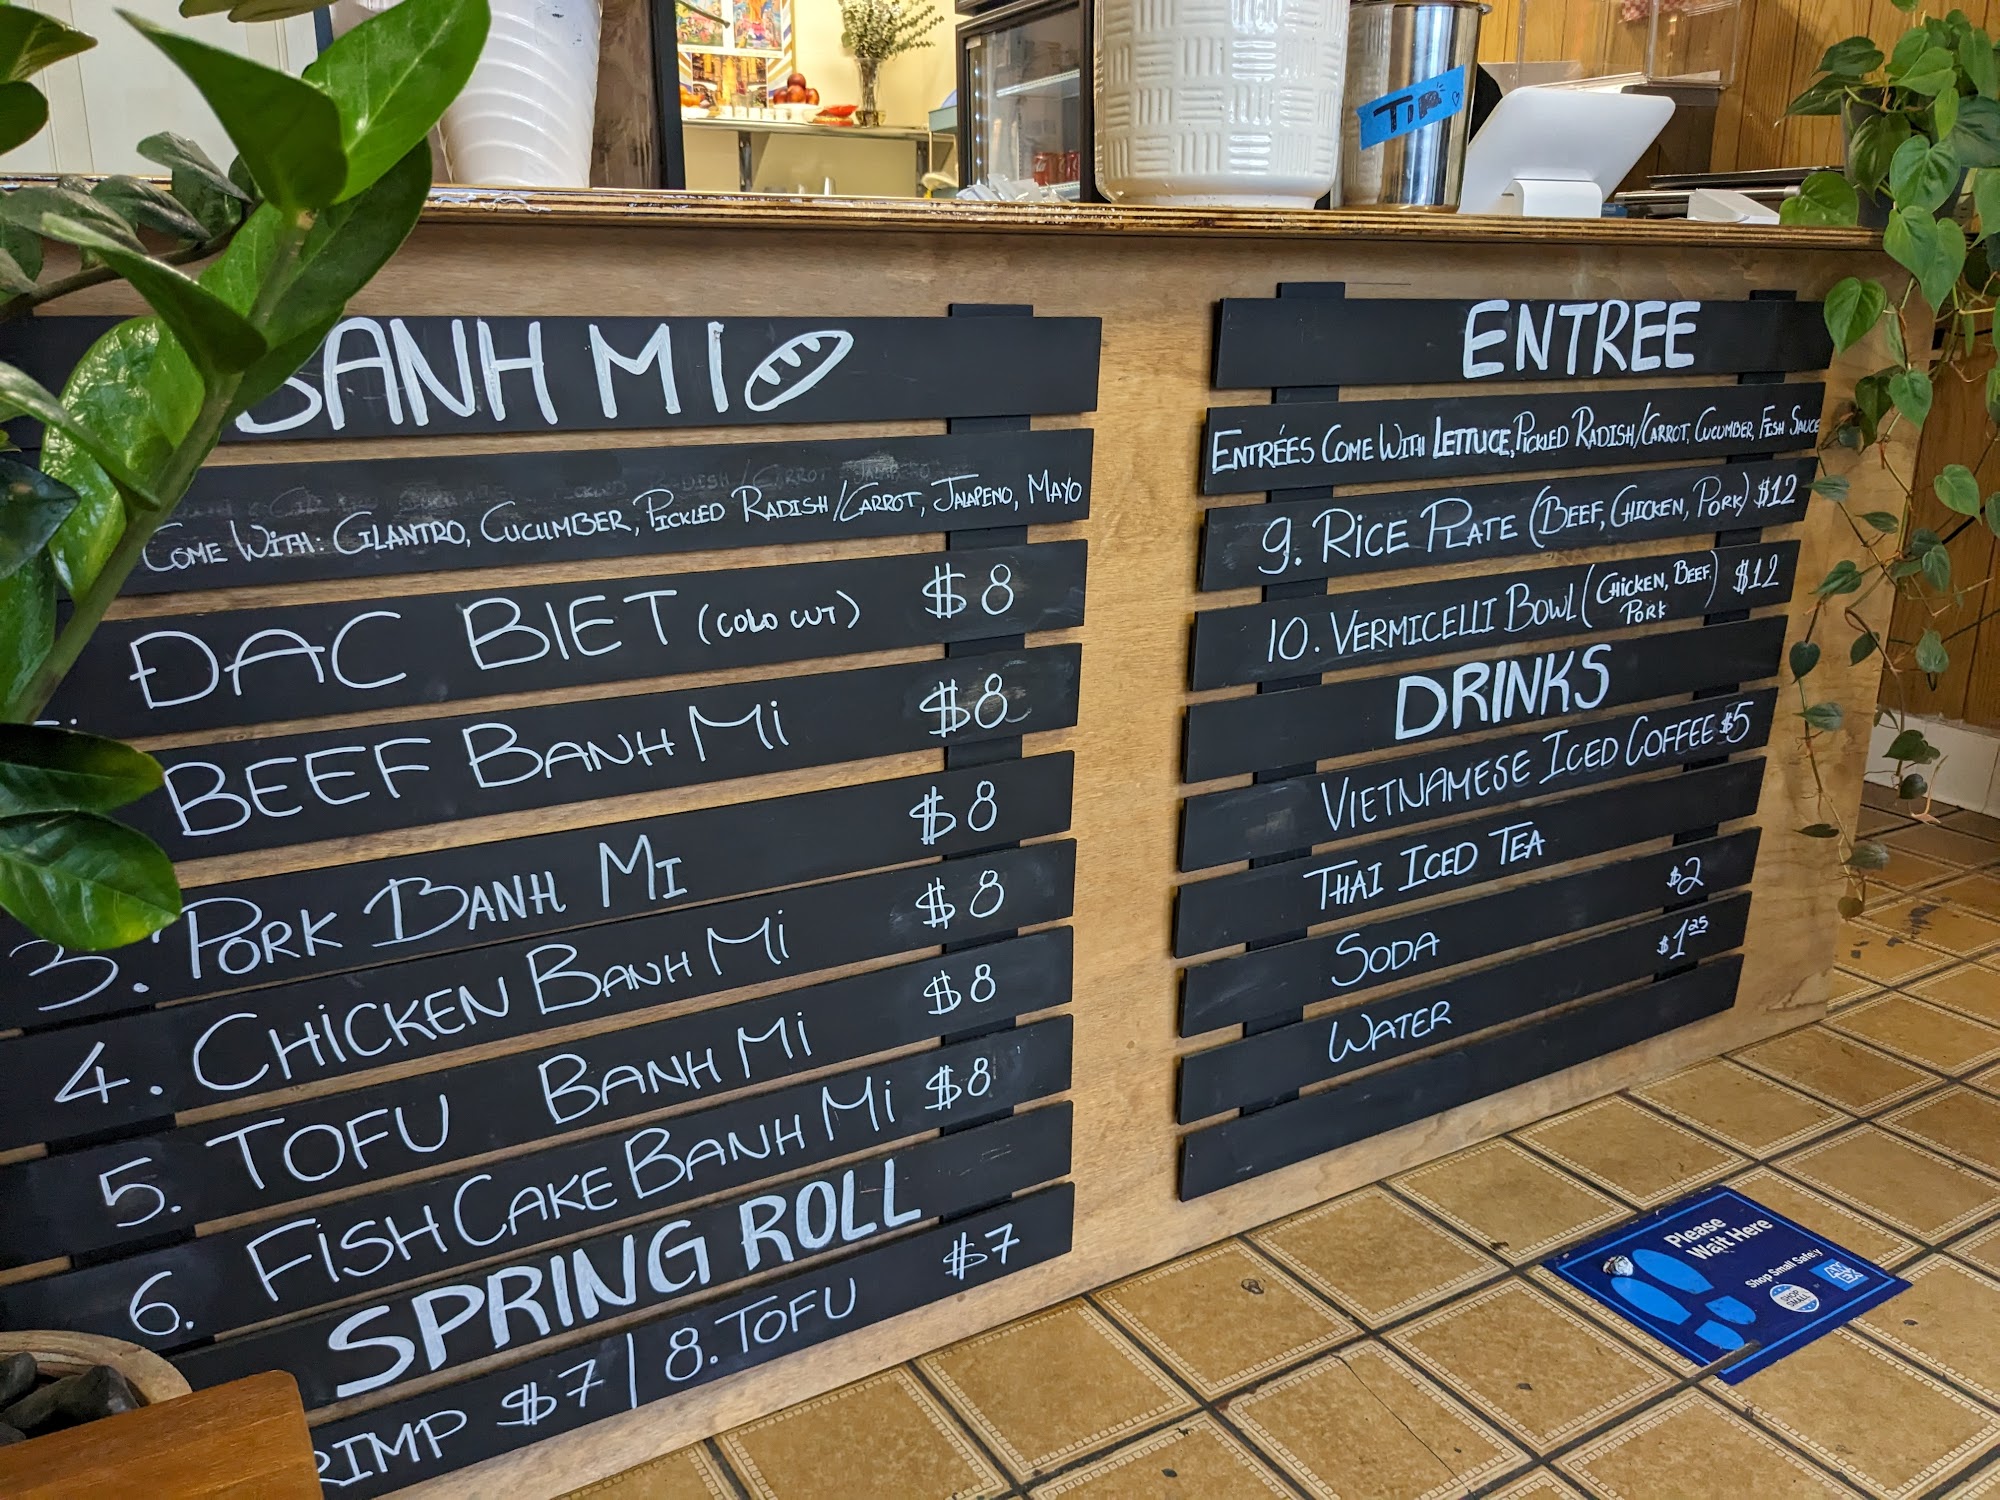 TIP
BANH MI
COME WITH: CILANTRO, CUCUMBER, PICKLED RADISH/CARROT, JALAPENO, MAYO
ĐAC BIET (COLD CUT) $8
BEEF BANH Mi $8
3. PORK BANH MI $8
4. CHiCKEN BANH Mi $8
5. TOFU BANH Mi $8
6. FiSH CAKE BANH Mi $8
SPRING ROLL
RIMP $7 | 8. TOFU $7
ENTREE
ENTRÉES COME WITH LETTUCE, PICKLED RADISH/CARROT, CUCUMBER, FISH SAUCE
9. RICE PLATE (BEEF, CHICKEN, PORK) $12
10. VERMICELLI BOWL (CHICKEN, BEEF, PORK) $12
DRINKS
VIETNAMESE ICED COFFEE $5
THAI ICED TEA
SODA $2
WATER $1.25
Please
Wait Here
Shop Small Safely
SHOP
SMALL
AM
EX